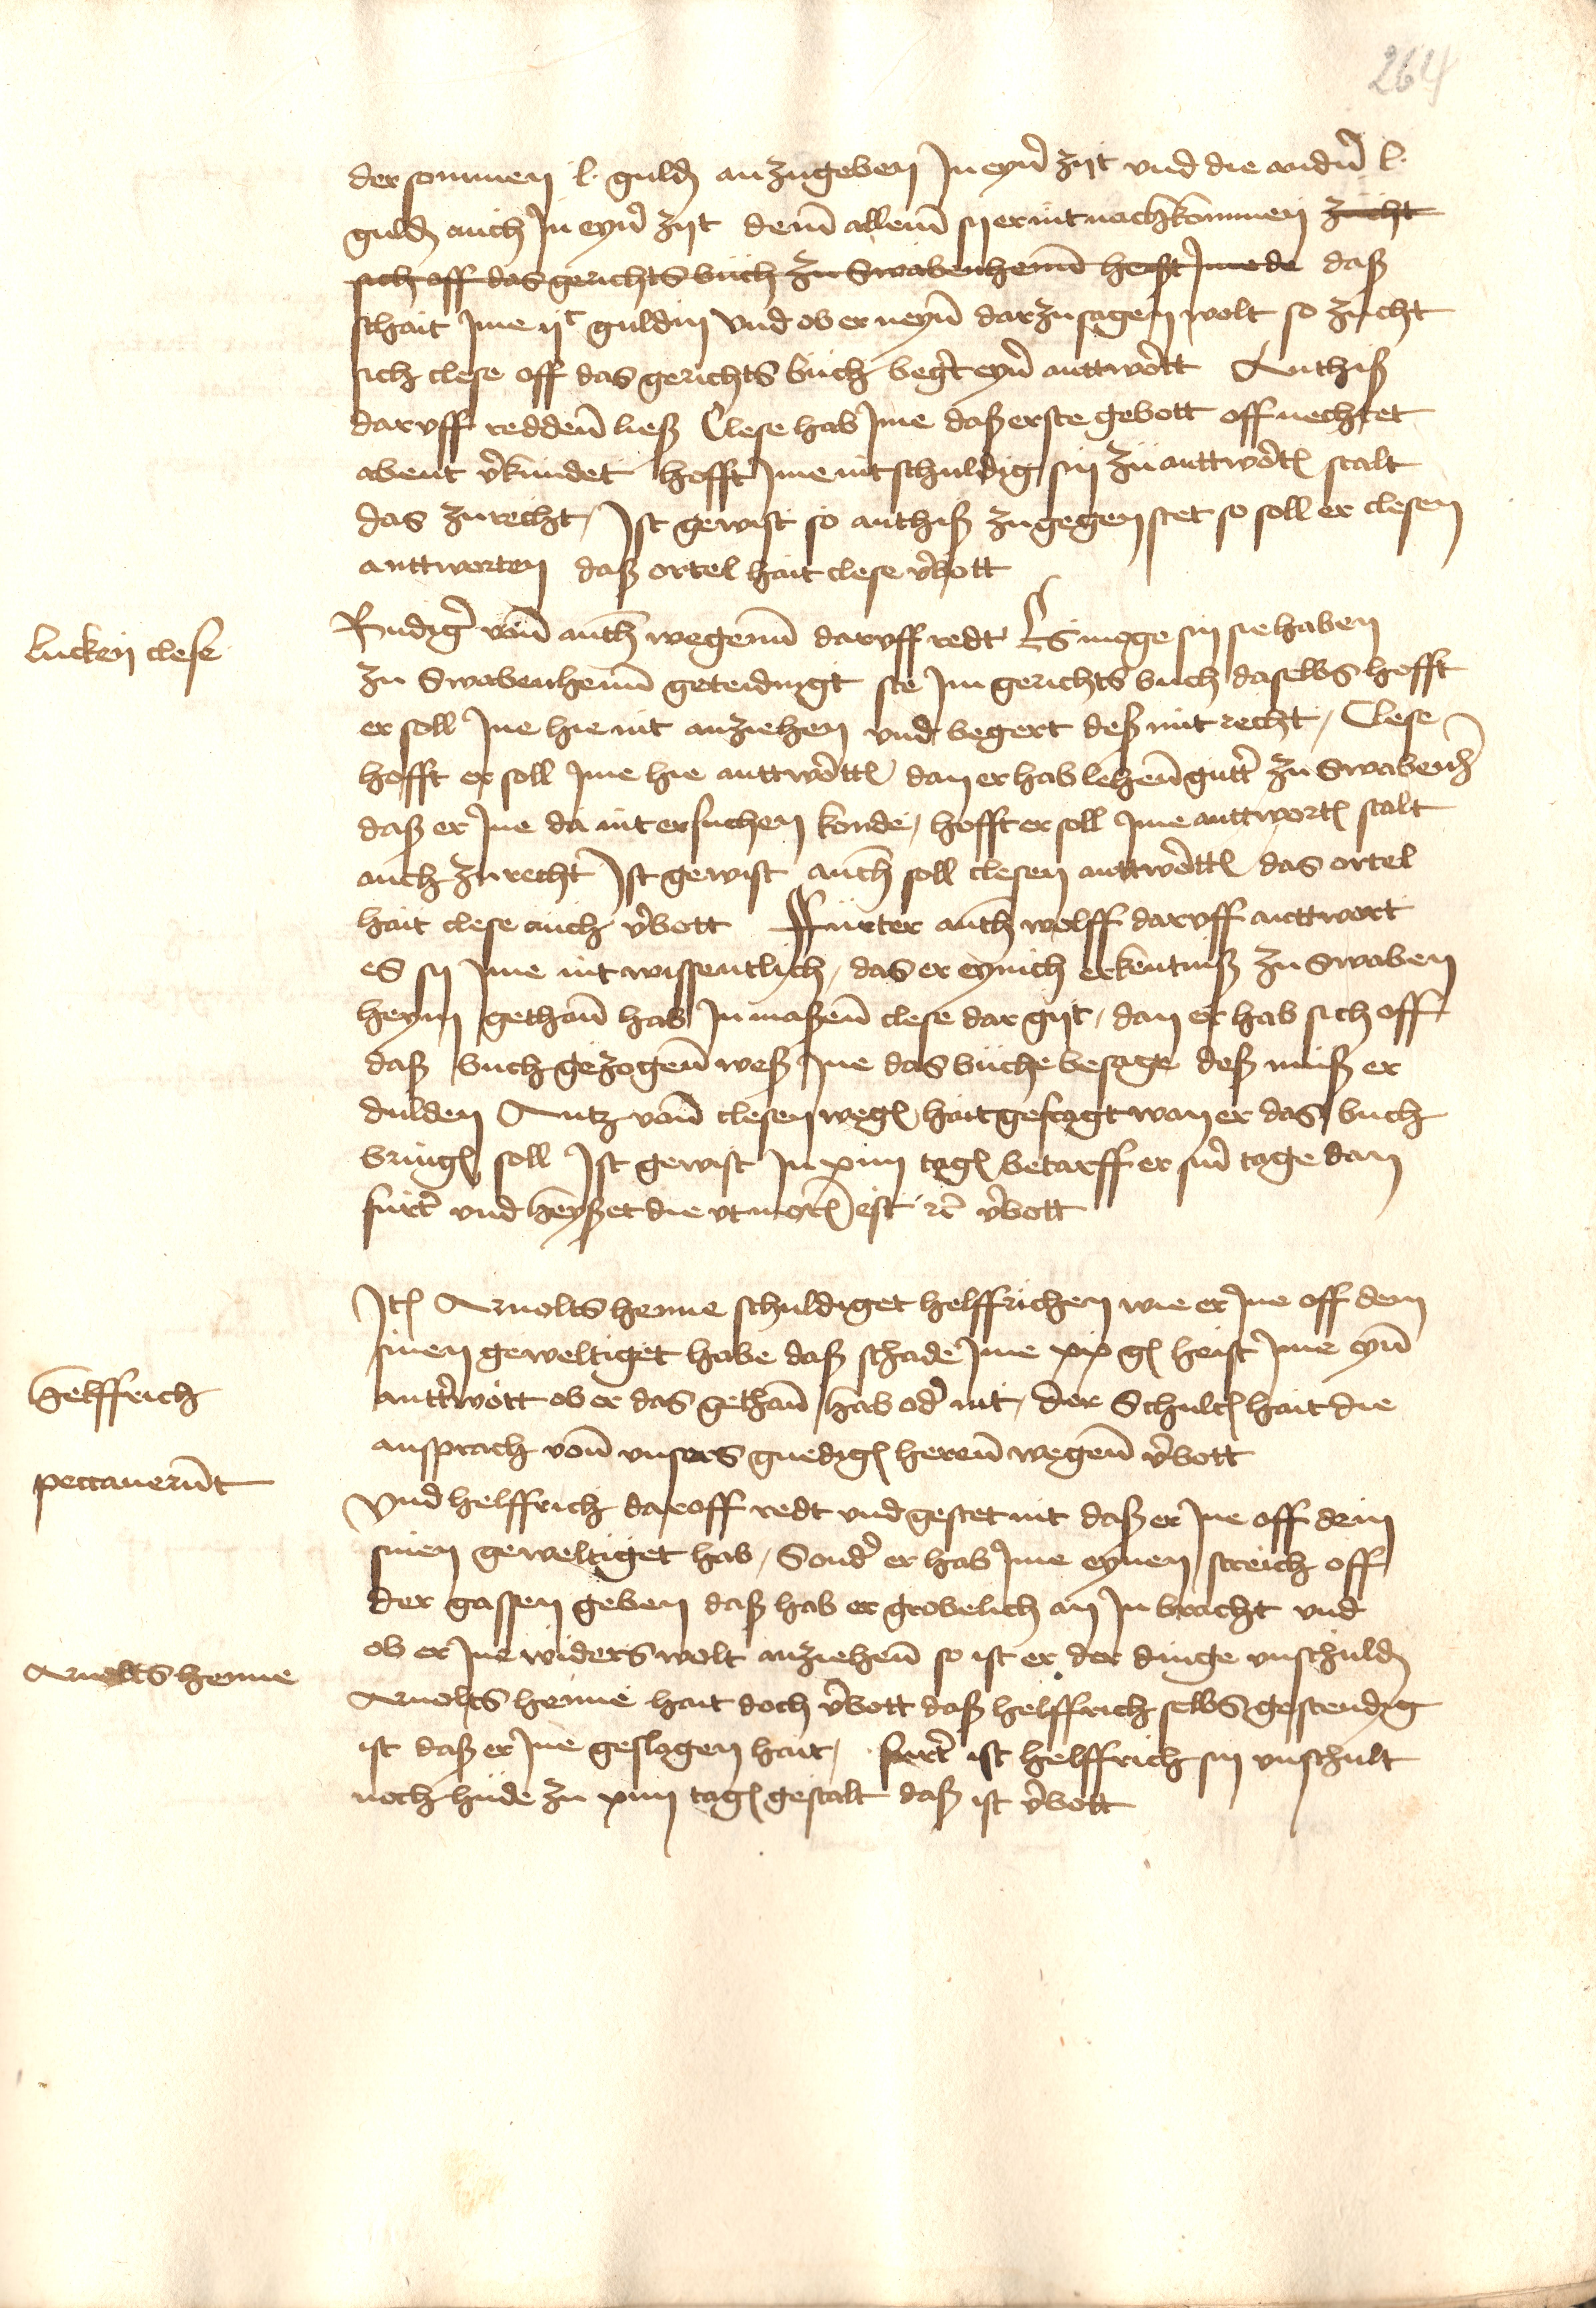 264
der sommen l. guld anzugeben In eyn zijt vnd die andn l.
guld auch In eyn zijt dem allem sy er nit nachkommen zucht
sich off das gerichts buch zu Swabenhem heist Ime de daß
schait Ime ijc guldin vnd ob er neyn dar zu sagen wolt so zucht
sich clese off das gerichts buch begt eyn anttwott Anthiß
daruff redden ließ Clese hab Ime daß erste gebott off nechtet
abent vkundet hofft Ime nit schuldig sin zu anttwot stalt
das zu recht / Ist gewist so anthiß zugegen stet so soll er clesen
anttworten daß ortel hait clese vbott
lucken clese
Rudig von anth wegenn daruff redt Es moge sin sie haben
zu Swabenhemm geteidingt ste Im gerichts buch daselbs hofft
er soll Ine hie nit anziehen vnd begert deß mit recht / Clese
hofft er soll Ime hie anttwott dan er hab lehen gutt zu Swabenh
daß er Ine da nit ersuchen konde / hofft er soll Ime anttwort stalt
auch zu recht Ist gewist anth soll clesen anttwott das ortel
hait clese auch vbott ffurter anth wolff daruff anttwort
es sy Ime nit wissentlich / das er eynich erkentniß zu Swaben
heym gethan hab In maßen clese dar gijt / dan er hab sich off
daß buch gezogen weß Ine das buche besage deß muß er
dulden Antz von clesen weg hait gefragt wan er das buch
bring soll Ist gewist In xiiij tag betarff er sin tage dan
furt vnd heyschet die vt mor est rc vbott
It Arnolts henne schuldiget helffrichen wie er Ine off dem
sinen geweltiget habe daß schade Ime xix gl heist Ime eyn
helffrich
anttwott ob er das gethan hab od nit / der Schult hait die
ansprach von vnsers gnedig heren wegen vbott
peccauerunt
Vnd helffrich daroff redt vnd gestet nit daß er Ine off dem
sinen geweltiget hab / Sond er hab Ime eynen streich off
der gassen geben daß hab er grobelich an In bracht vnd
ob er Ine widers wolt anziehen so ist er der dinge vnschuld
Arnolts henne
Arnolts henne hait doch vbott daß helffrich selbs gestendig
ist daß er Ine geslagen hait / furt ist helffrich sin vnschult
noch hude zu xiiij tag gestalt daß ist vbott